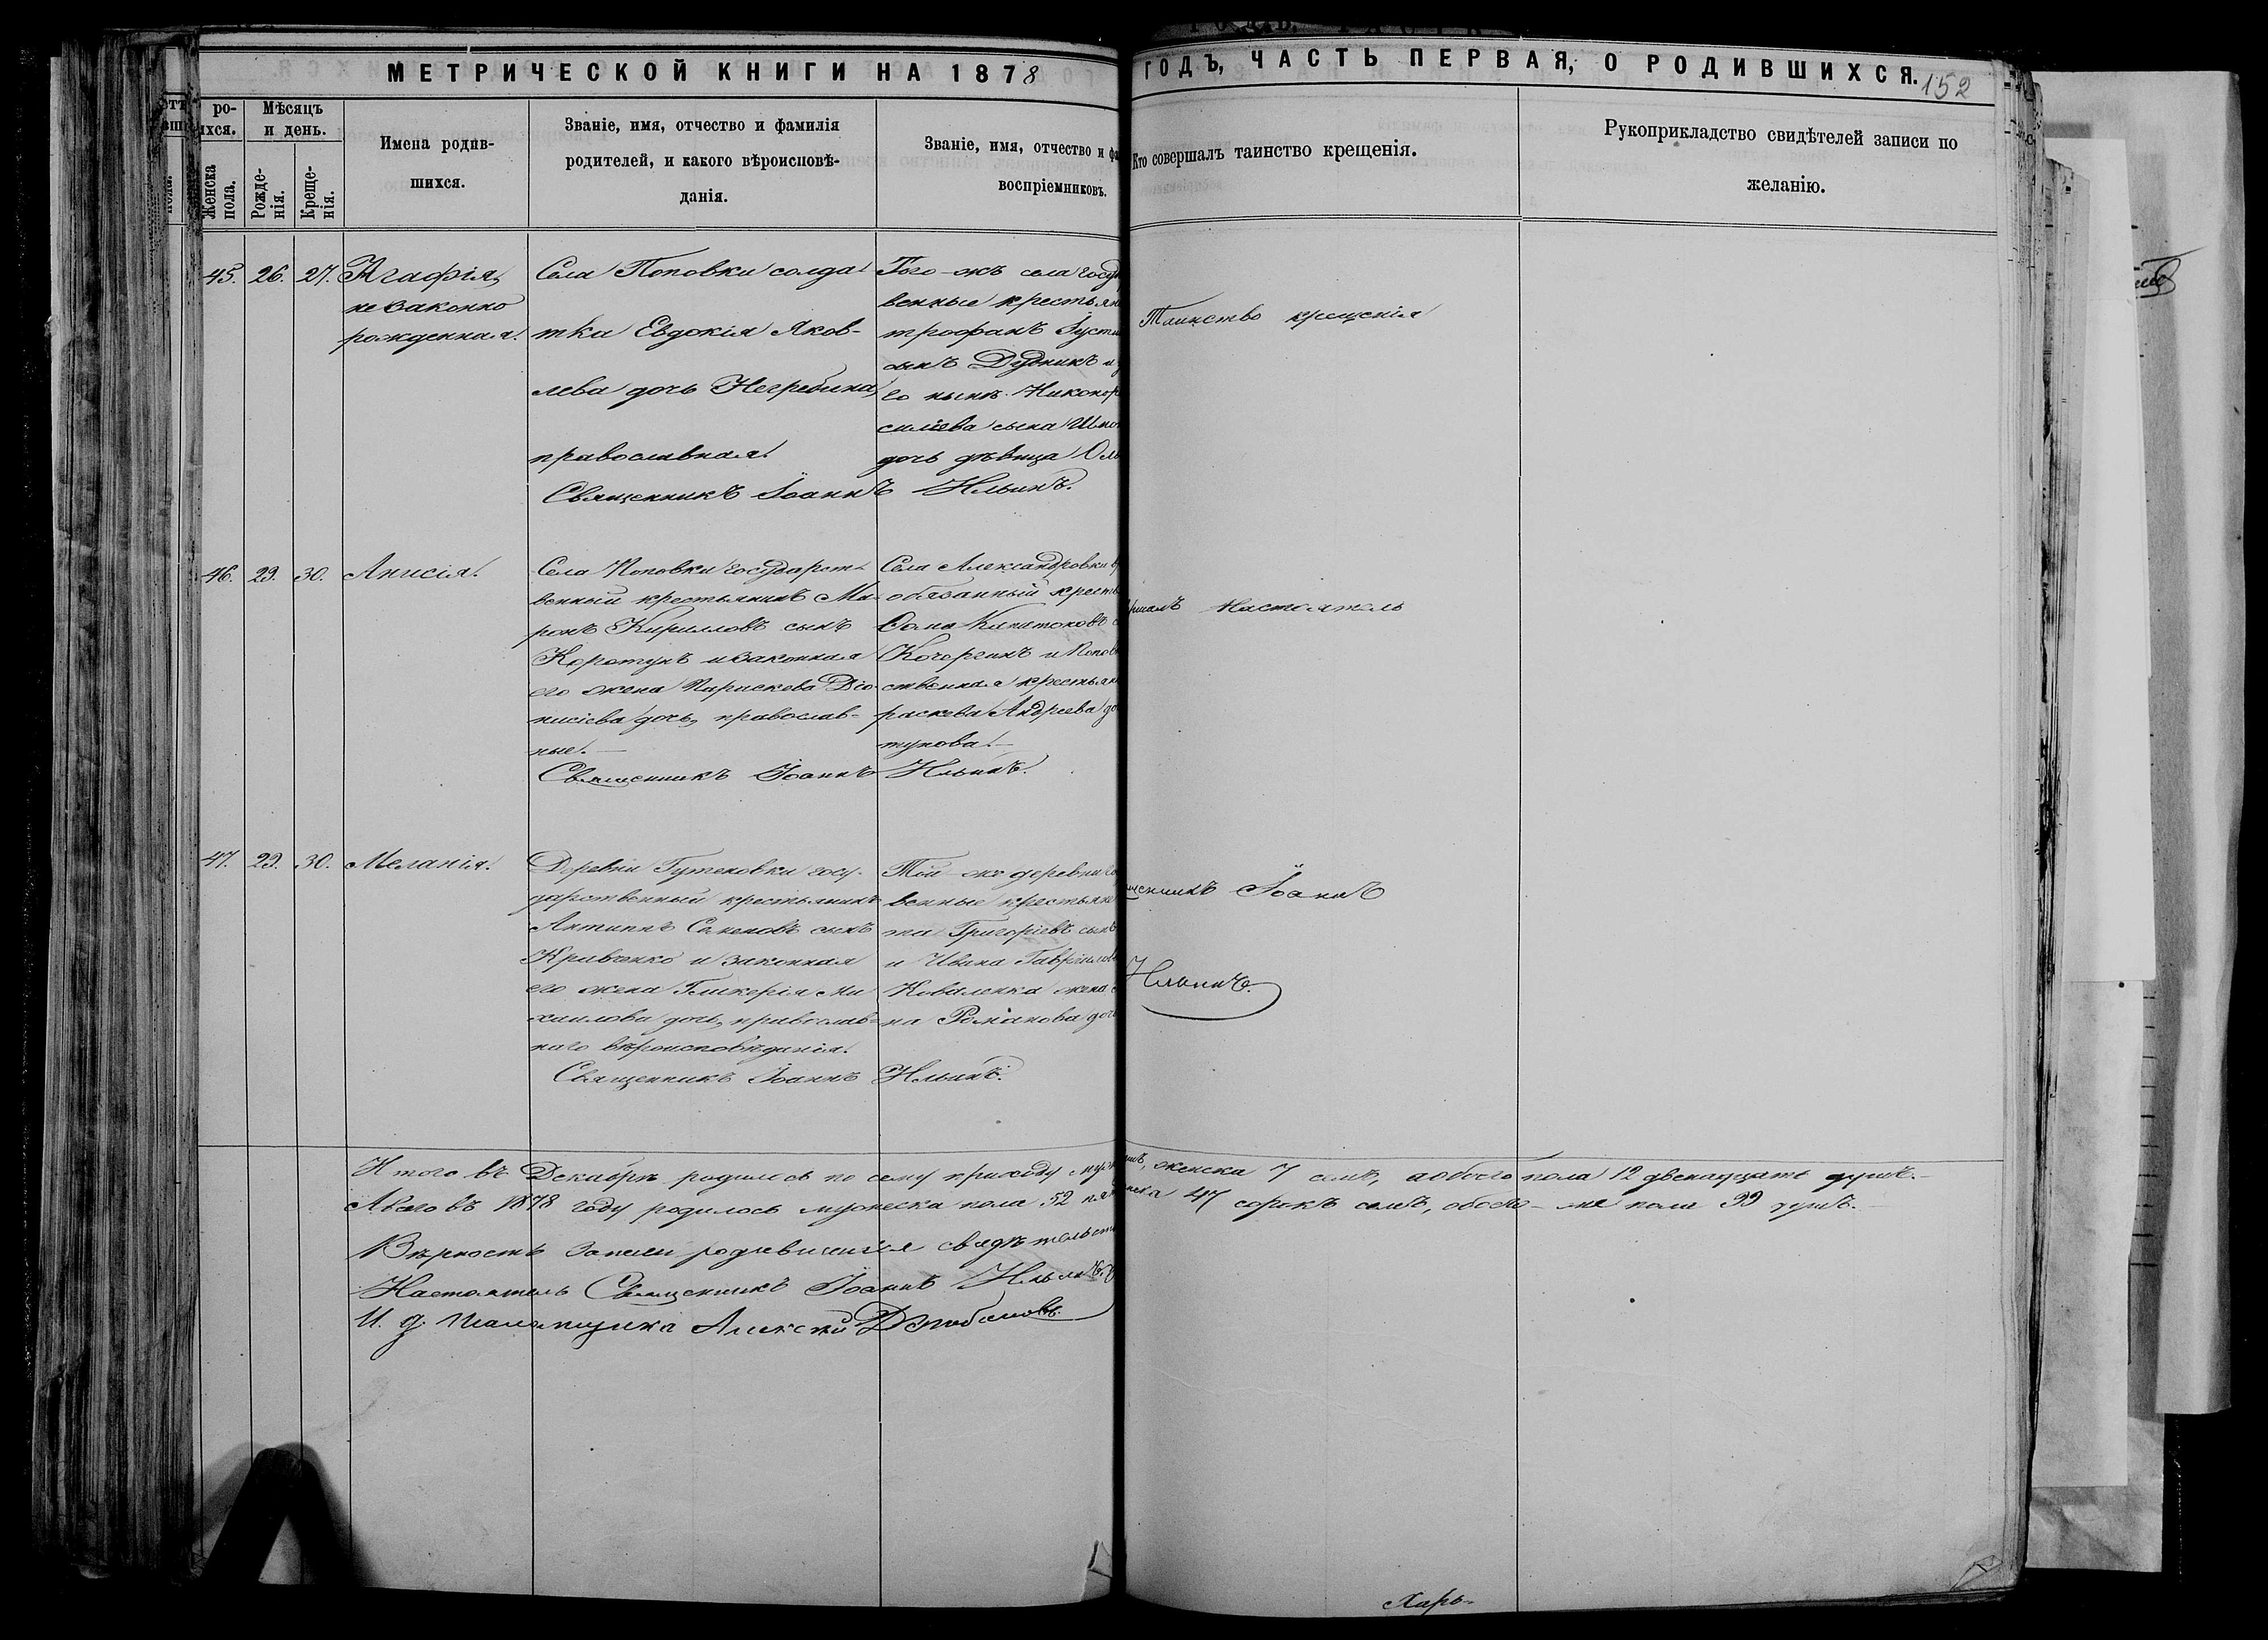 МЕТРИЧЕСКОЙ КНИГИ НА 1878
ГОДЪ, ЧАСТЬ ПЕРВАЯ, О РОДИВШИХСЯ.
152
ро-
ихся.
Женска
пола.
Мѣсяцъ
и день.
Рожде-
нія.
Креще-
нія.
Имена родив-
шихся.
Званіе, имя, отчество и фамилія
родителей, и какого вѣроисповѣ-
данія.
Званіе, имя, отчество и фа
воспріемниковъ.
Кто совершалъ таинство крещенія.
Рукоприкладство свидѣтелей записи по
желанію.
45. 26. 27.
Агафія,
незаконно
рожденная.
Села Поповки солда-
тка Евдокія Яков-
лева дочь Негребина,
православная.
Того-жъ села госуд
венные крестьян
трофанъ Іусти
сынъ Дудникъ и
Никонор
сыліева сына
дочь дѣвица Оль
Священникъ Іоаннъ Ильинъ.
46. 29. 30.
Анисія.
Села Поповки государст-
венный крестьянинъ Ми-
ронъ Кирилловъ сынъ
Коротунъ и законная
его жена Параскева Діо-
нисіева дочь, православ-
ные.
Села Александровки в
обязанный кресть
Ѳома Капитоновъ с
Кочергинъ и Попов
ственная крестьян
раскева Андреева до
тунова.
Священникъ Іоаннъ Ильинъ.
47. 29. 30.
Меланія.
Деревни Гутековки госу-
дарственный крестьянинъ
Антипъ Семеновъ сынъ
Кравченко и законная
его жена Гликерія Ми
хаилова дочь, православ-
наго вѣроисповѣданія.
Той-же деревни го
венные крестьяне
та Григоріевъ сынъ
и Ивана Гавріилов
Коваленка жена
на Романова дочь
Священникъ Іоаннъ Ильинъ.
Таинство крещенія
ршалъ Настоятель
щенникъ Іоаннъ
Ильинъ.
Итого въ Декабрѣ родилось по сему приходу муж женска 7 семь, а обоего пола 12 двенадцать душъ.
А всего въ 1878 году родилось мужеска пола 52 пят 47 сорокъ семь, обоего-же пола 99 душъ.
Вѣрность записи родившихся свидѣтельст
Настоятель Священникъ Іоаннъ Ильинъ.
И. д. Псаломщика Алексѣй
Харь-